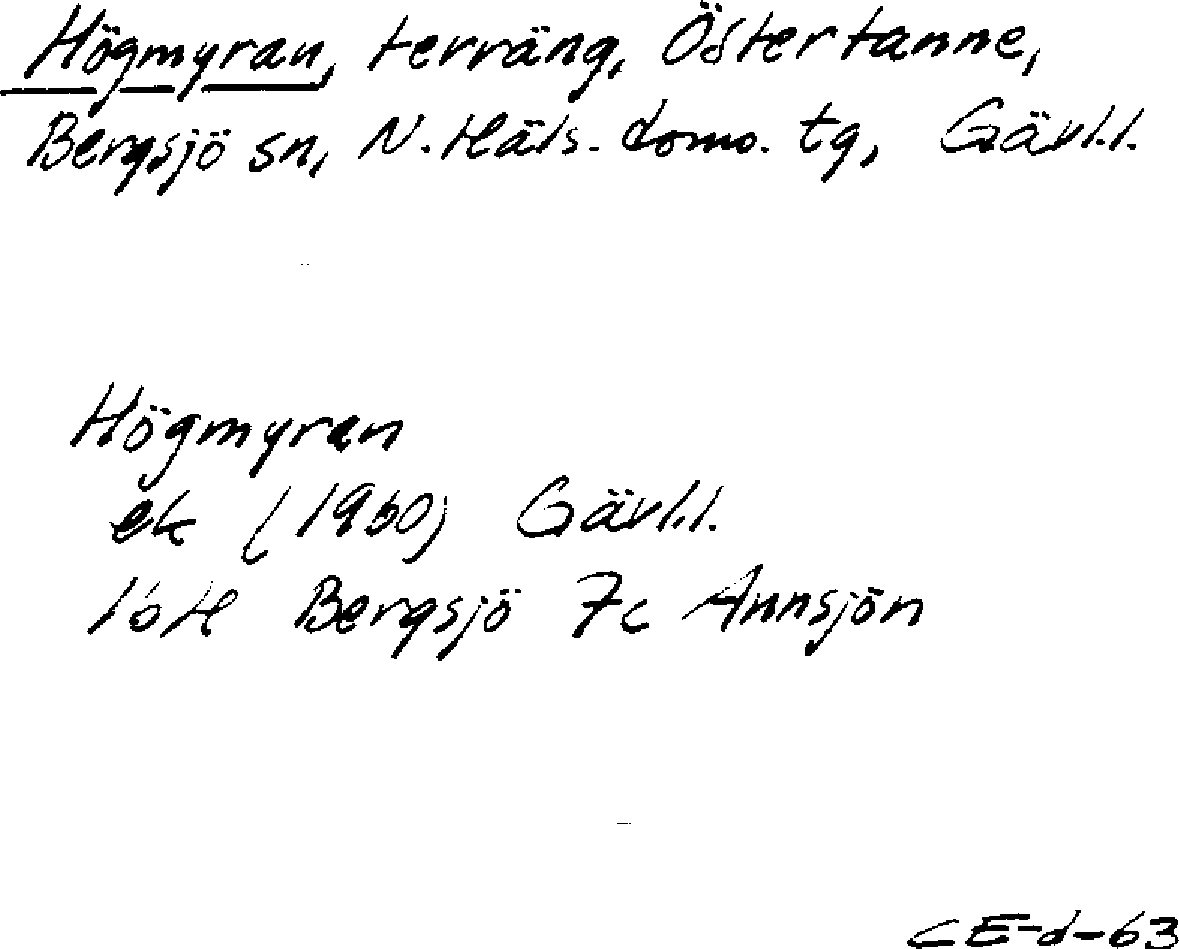 Högmyran, terräng, Östertanne,
Bergsjö sn, N. Häls. doms. tg, Gävl.l.
Högmyran
ek (1960) Gävl.l.
16H Bergsjö 7c Annsjön
CE-d-63